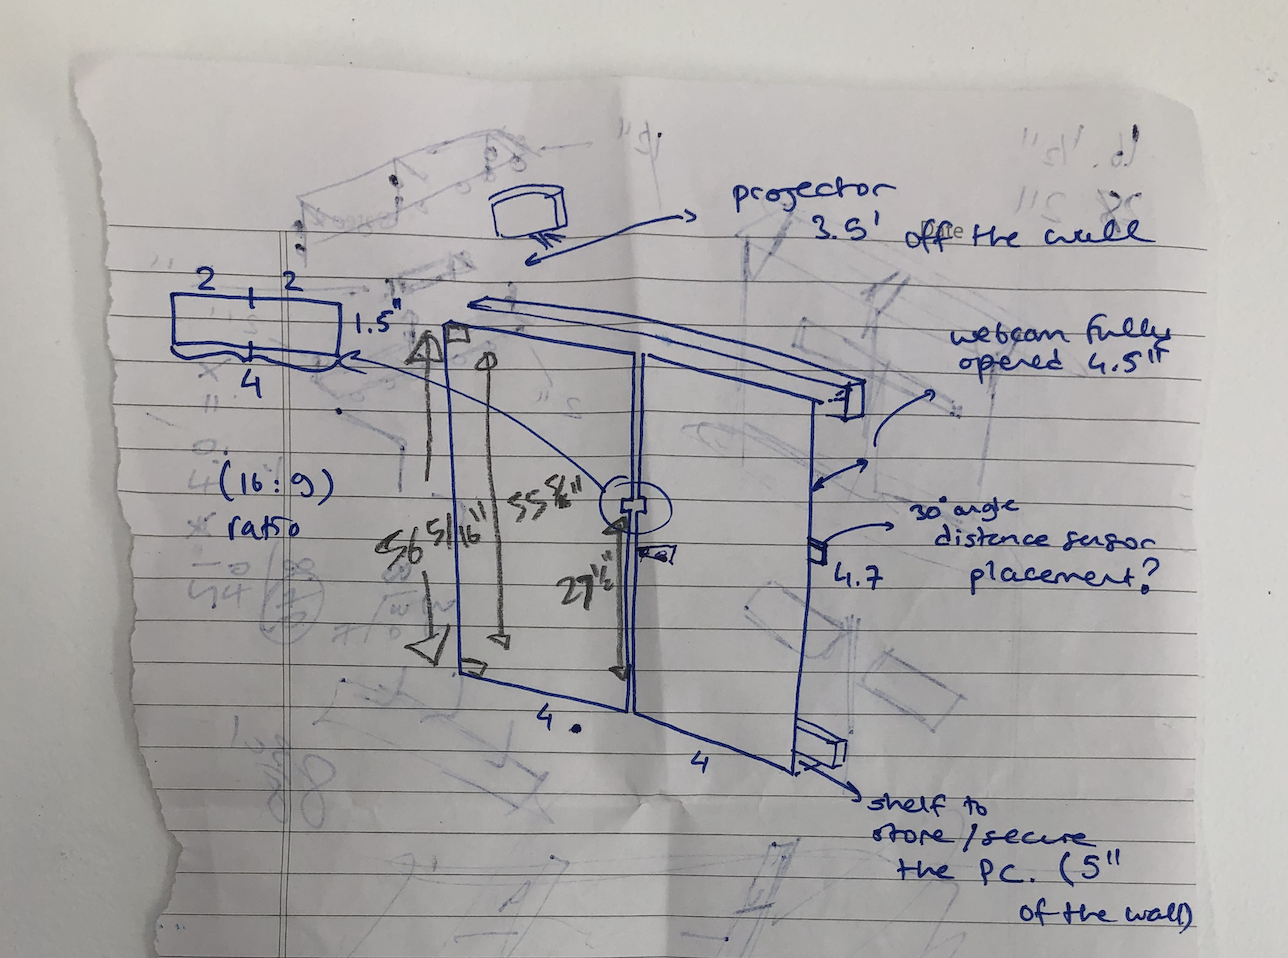 projector
3.5' off the wall
2 2
1.5"
4
webcam fully
opened 4.5"
(16:9)
ratio
56 5/16"
55 5/8"
27 1/2"
30° angle
distance sensor
placement?
4.7
4
4
shelf to
store/secure
the PC. (5"
of the wall)
16. 1/2"